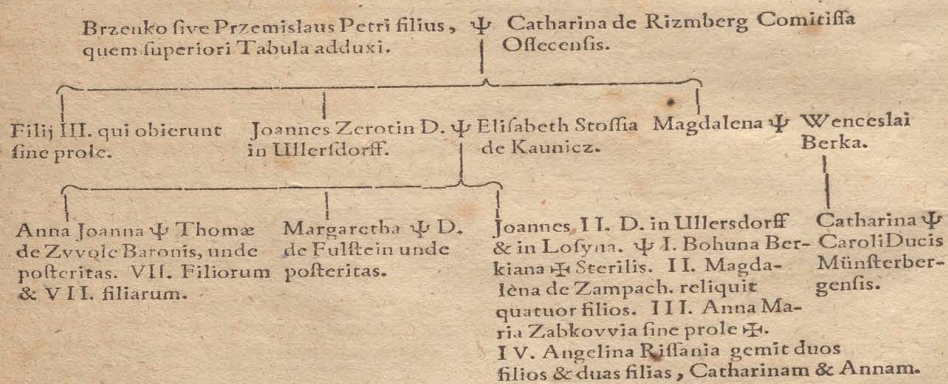 Brzenko ſive Przemislaus Petri filius, Ψ Catharina de Rizmberg Comitiſſa
quem ſuperiori Tabula adduxi. Oſſecenſis.
Filij III. qui obierunt
ſine prole.
Joannes Zerotin D. Ψ Eliſabeth Stoſſia
in Ullerſdorff. de Kaunicz.
Magdalena Ψ Wenceslai
Berka.
Anna Joanna Ψ Thomæ
de Zvvole Baronis, unde
poſteritas. VII. Filiorum
& VII. filiarum.
Margaretha Ψ D.
de Fulſtein unde
poſteritas.
Joannes, II. D. in Ullersdorff
& in Loſyna. Ψ I. Bohuna Ber-
kiana ✠ Sterilis. II. Magda-
lèna de Zampach. reliquit
quatuor filios. III. Anna Ma-
ria Zabkovvia ſine prole ✠.
IV. Angelina Riſſania gemit duos
filios & duas filias, Catharinam & Annam.
Catharina Ψ
Caroli Ducis
Münſterber-
genſis.